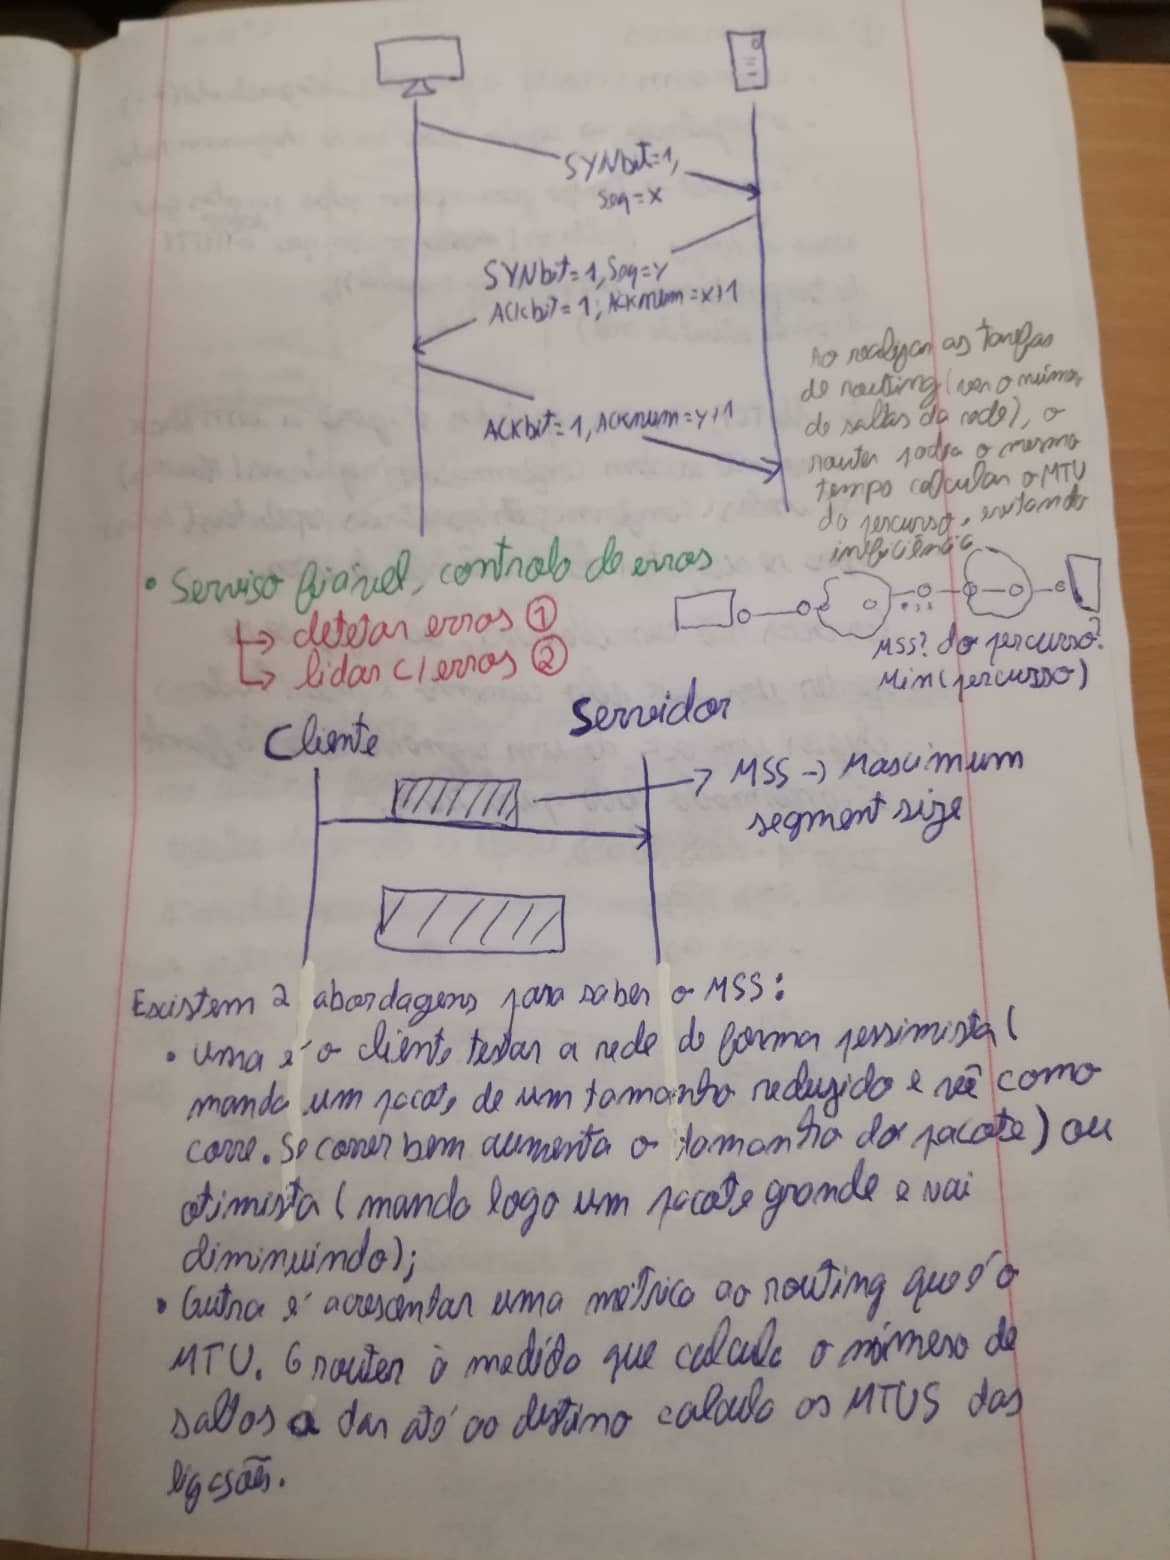 SYNbit=1,
Seq=x
SYNbit=1, Seq=y
ACKbit=1; ACKnum=x+1
ACKbit=1, ACKnum=y+1
Ao realizar as tarefas
de routing (ver o número
de saltos da rede), o
router podia o mesmo
tempo calcular o MTU
do percurso, evitando
ineficiência
• Serviso fiável, controlo de erros
↳ detetar erros ①
↳ lidar c/ erros ②
MSS? do percurso?
Min(percurso)
Cliente
Servidor
MSS → Mascimum
segment size
Escistem 2 abordagens para saber o MSS:
• uma é o cliente testar a rede de forma pessimista (
manda um pacote de um tamanho reduzido e vê como
corre. Se correr bem aumenta o tamanho do pacote) ou
otimista (manda logo um pacote grande e vai
diminuindo);
• Outra é acrescentar uma métrica ao routing que é o
MTU. O router à medida que calcula o número de
saltos a dar até ao destino calcula os MTUS das
ligações.